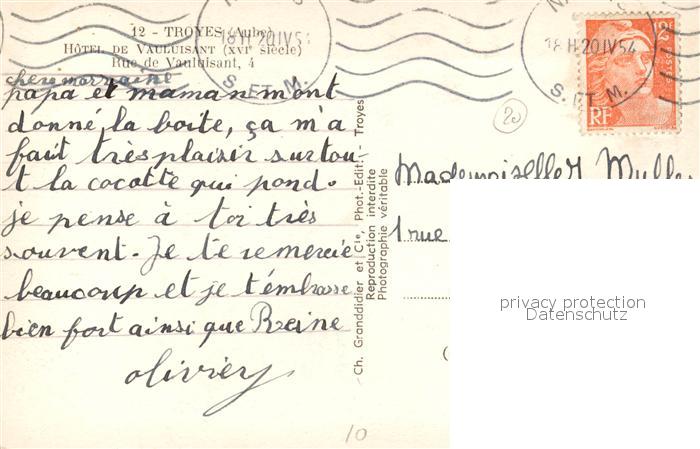 12 - TROYES (Aube)
HÔTEL DE VAULUISANT (XVIe siècle)
Rue de Vauluisant, 4
chere marraine
papa et maman m'ont
donné la boite, ça m'a
fait très plaisir surtou
t la cocotte qui pond.
je pense à toi très
souvent. Je te remercie
beaucoup et je t'embrasse
bien fort ainsi que Reine
olivier
Ch. Granddidier et Cie, Phot.-Edit. - Troyes
Reproduction interdite
Photographie véritable
18 H 20 IV 54
S. ET M.
18 H 20 IV 54
S. ET M.
12F
POSTES
RF
20
Mademoiselle
1 rue
privacy protection
Datenschutz
10